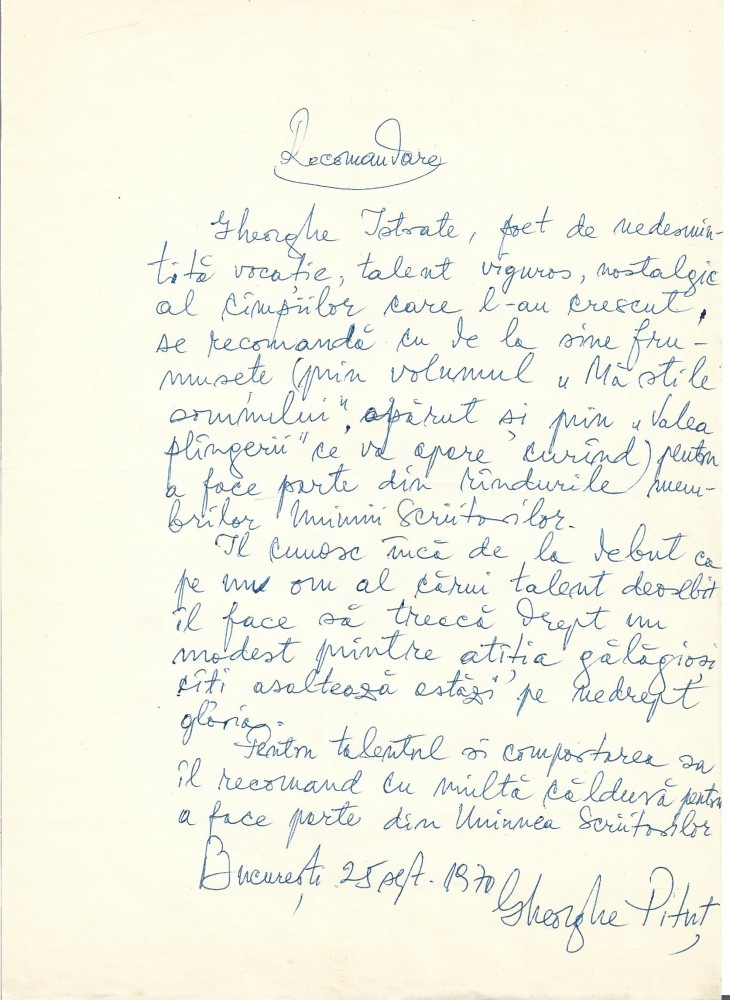 Recomandare
Gheorghe Istrate, poet de nedesmin-
țită vocație, talent viguros, nostalgic
al cîmpiilor care l-au crescut,
se recomandă cu de la sine fru-
musețe (prin volumul „Măștile
somnului", apărut și prin „Valea
plîngerii" ce va apare curînd) pentru
a face parte din rîndurile mem-
brilor Uniunii Scriitorilor.
Il cunosc încă de la debut ca
pe un om al cărui talent deosebit
îl face să treacă drept un
modest printre atîția gălăgioși
cîți asaltează astăzi pe nedrept
gloria.
Pentru talentul si comportarea sa
îl recomand cu multă căldură pentru
a face parte din Uniunea Scriitorilor
București 25 sept. 1970
Gheorghe Pituț